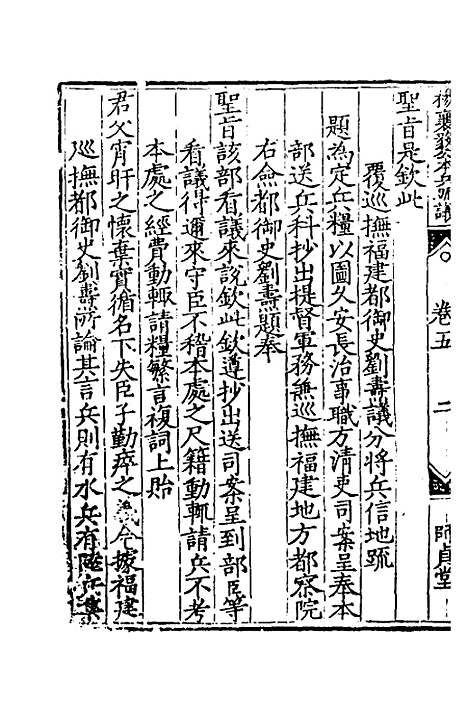 楊襄毅公本兵疏議 卷五 二 師貞堂
聖旨是欽此
覆巡撫福建都御史劉燾議分將兵信地疏
題為定兵糧以圖久安長治事職方清吏司案呈奉本
部送兵科抄出提督軍務兼巡撫福建地方都察院
右僉都御史劉燾題奉
聖旨該部看議來說欽此欽遵抄出送司案呈到部臣等
看議得邇來守臣不稽本處之尺籍動輒請兵不考
本處之經費動輒請糧繁言複詞上貽
君父宵旰之懷棄實循名下失臣子勤瘁之 今據福建
巡撫都御史劉燾所論其言兵則有水兵有陸兵